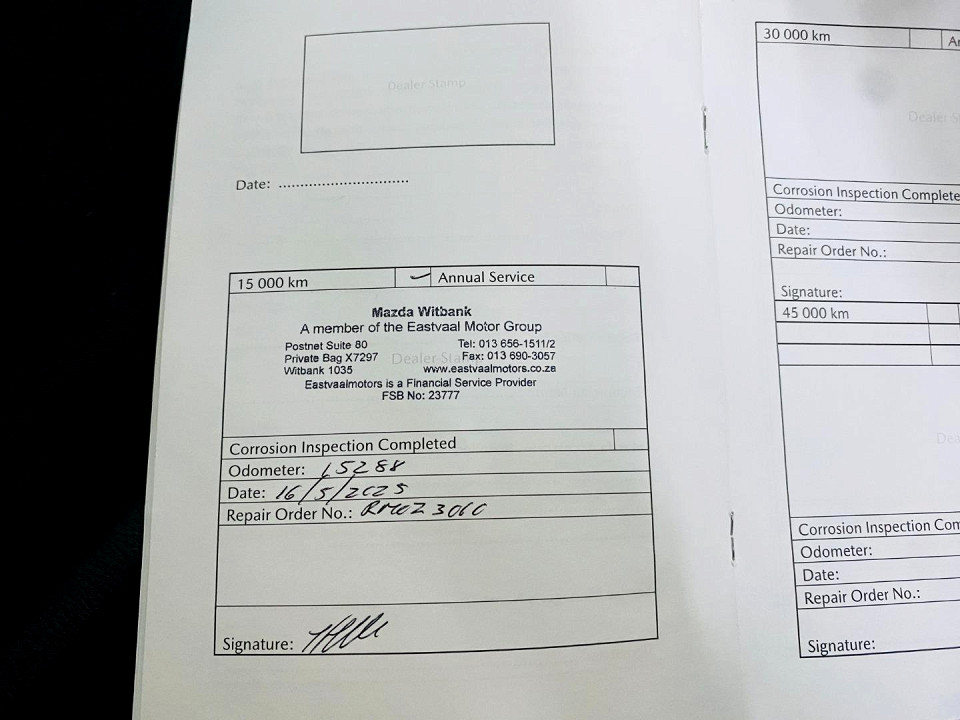 Dealer Stamp
Date: ..............................
15 000 km ✓ Annual Service
Mazda Witbank
A member of the Eastvaal Motor Group
Postnet Suite 80 Tel: 013 656-1511/2
Private Bag X7297 Fax: 013 690-3057
Witbank 1035 www.eastvaalmotors.co.za
Eastvaalmotors is a Financial Service Provider
FSB No: 23777
Corrosion Inspection Completed
Odometer: 15288
Date: 16/5/2025
Repair Order No.:
Signature:
30 000 km
Dealer
Corrosion Inspection Complete
Odometer:
Date:
Repair Order No.:
Signature:
45 000 km
Corrosion Inspection Com
Odometer:
Date:
Repair Order No.:
Signature: